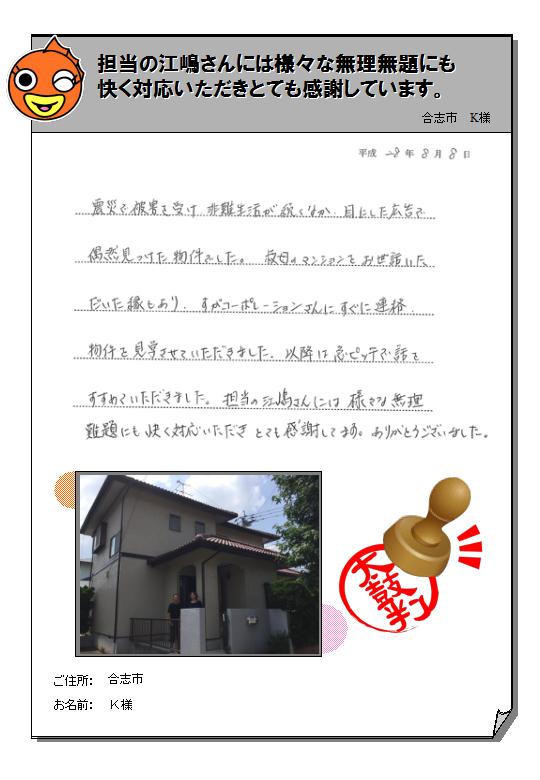 担当の江嶋さんには様々な無理無題にも
快く対応いただきとても感謝しています。
合志市　K様
平成 28 年 8 月 8 日
震災で被害を受け、非難生活が続くなか、目にした広告で
偶然見つけた物件でした。叔母のマンションをお世話いた
だいた縁もあり、すがコーポレーションさんにすぐに連絡、
物件を見学させていただきました。以降は急ピッチで話を
すすめていただきました。担当の江嶋さんには様々な無理
難題にも快く対応いただきとても感謝してます。ありがとうございました。
太鼓判
ご住所:　合志市
お名前:　K様